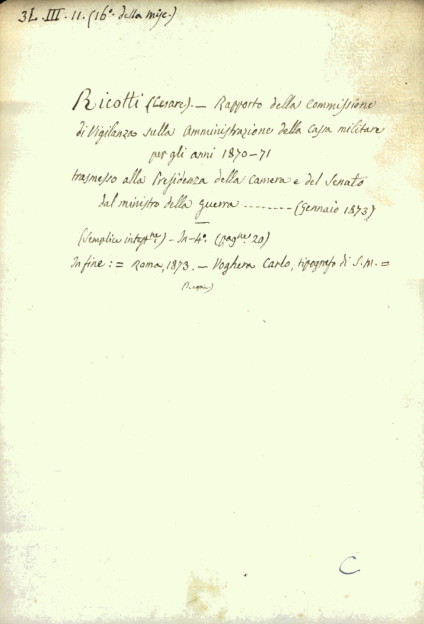 3L. III. 11. (16ª. della Misc.)
Ricotti (Cesare). — Rapporto della Commissione
di Vigilanza sulla Amministrazione della Cassa militare
per gli anni 1870-71
trasmesso alla Presidenza della Camera e del Senato
dal ministro della guerra -------- (Gennaio 1873)
(Semplice intestne.) - In-4º. (pagne 20)
In fine: = Roma, 1873. — Voghera Carlo, tipografo di S. M. =
C